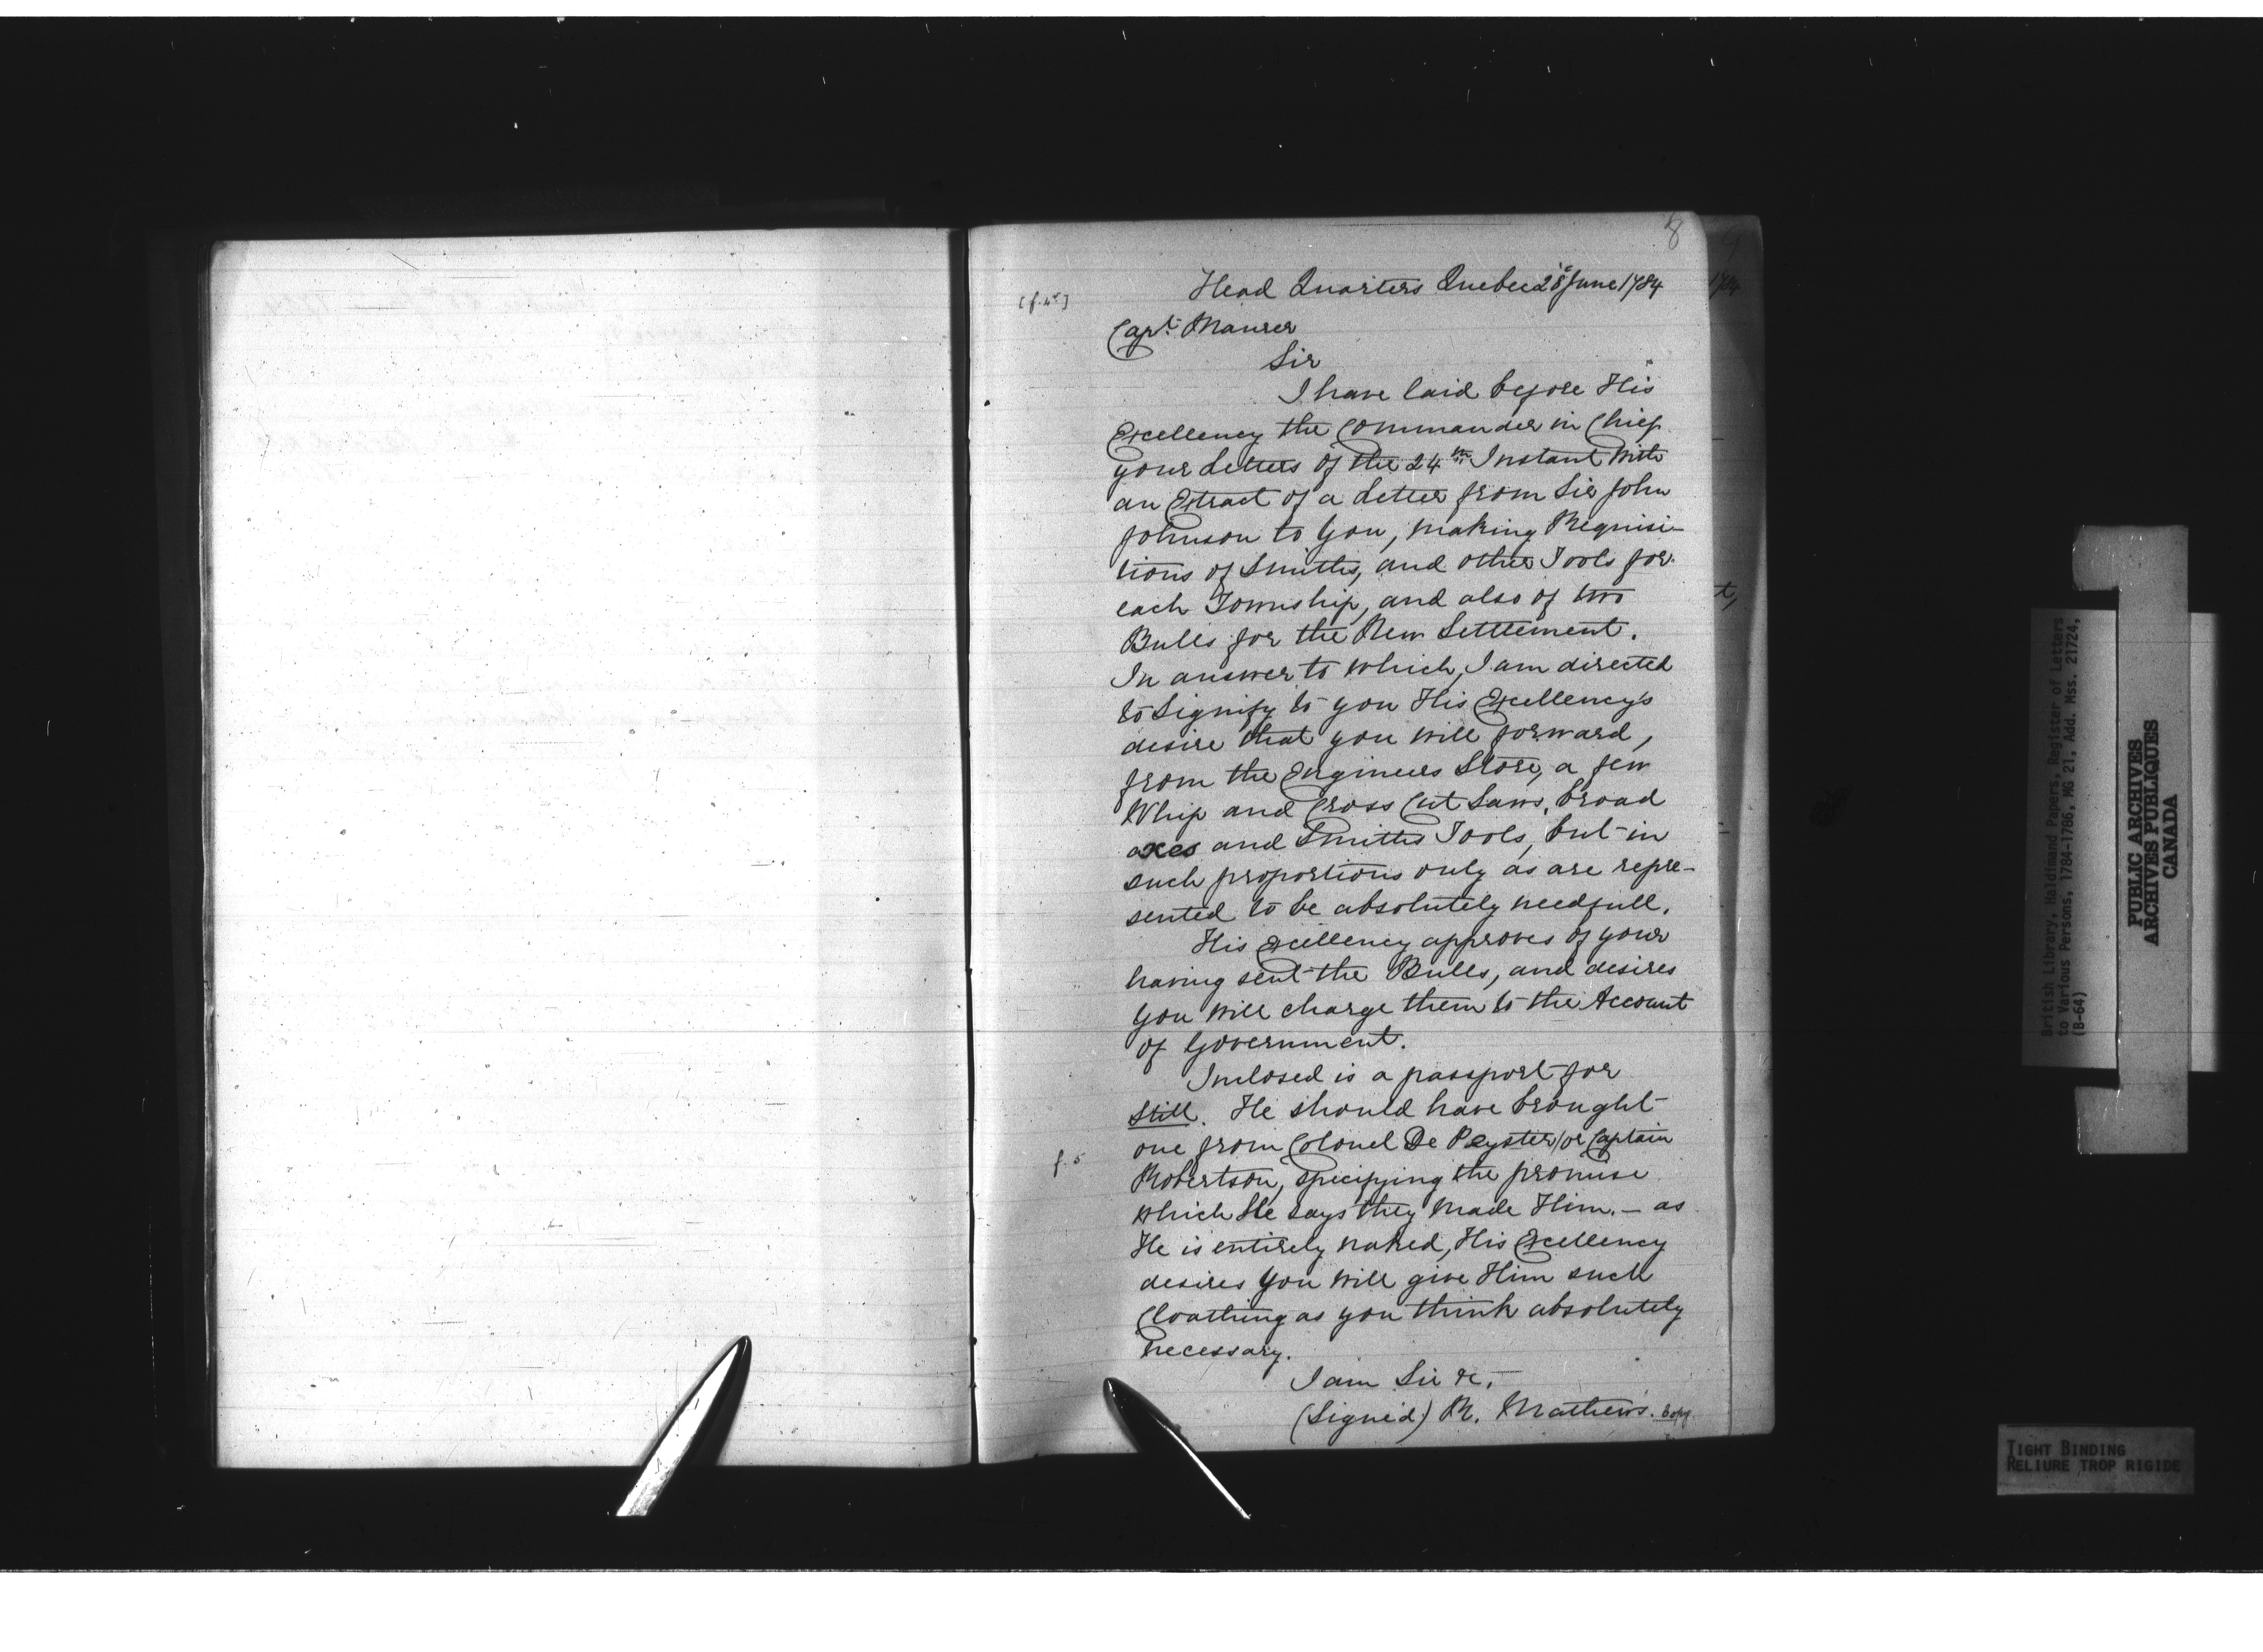 8
Head Quarters Quebec 28 June 1784
[f.4b]
Capt. Maurer
Sir
I have laid before His
Excellency the Commander in Chief
your Letters of the 24th Instant With
an Extract of a Letter from Sir John
Johnson to You, making Requisi-
tions of Smiths, and other Tools for
each Township, and also of two
Bulls for the New Settlement.
In answer to which, I am directed
to Signify to you His Excellency's
desire that you will forward,
from the Engineers Store, a few
Whip and Cross Cut Saws, broad
axes and Smiths Tools, but in
such proportions only as are repre-
sented to be absolutely needfull.
His Excellency approves of your
having sent the Bulls, and desires
you will charge them to the Account
of Government.
Inclosed is a passport for
Still. He should have brought
one from Colonel De Peyster/or Captain
f. 5
Robertson, specifying the promise
which He says they made Him. — as
He is entirely naked, His Excellency
desires You will give Him such
Cloathing as you think absolutely
necessary.
I am Sir &c,
(Signed) R. Mathews. Copy.
1784
t,
British Library, Haldimand Papers, Register of Letters
to Various Persons, 1784-1786, MG 21, Add. Mss. 21724,
(B-64)
PUBLIC ARCHIVES
ARCHIVES PUBLIQUES
CANADA
TIGHT BINDING
RELIURE TROP RIGIDE